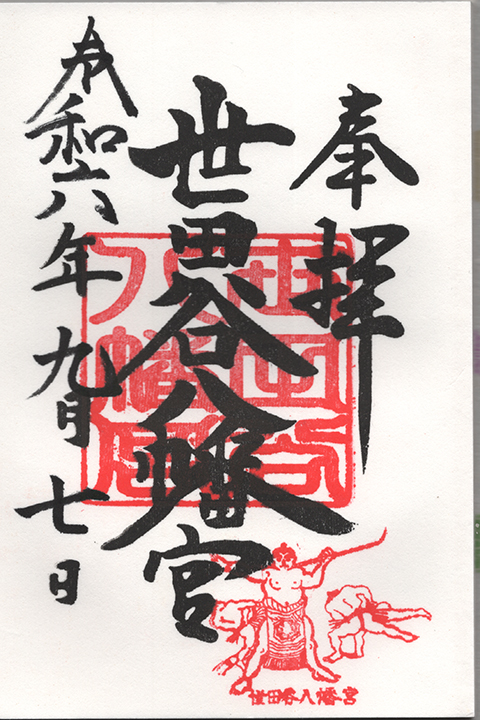 奉拝
世田谷八幡宮
令和六年九月七日
世田谷八幡宮
世田谷八幡宮